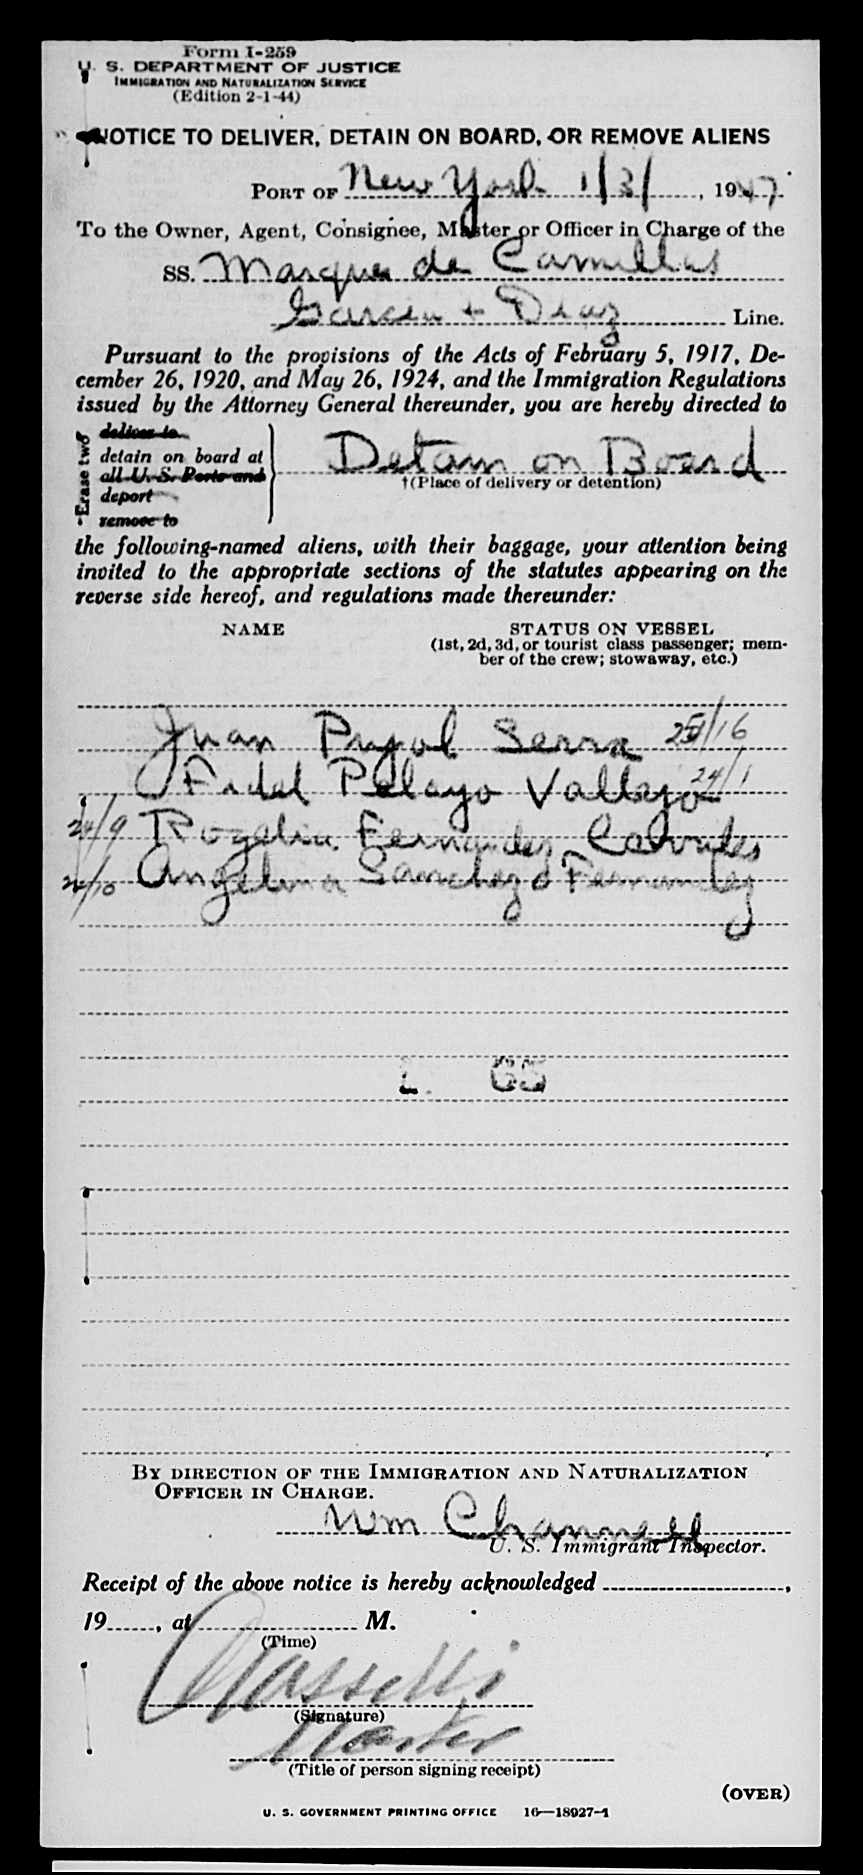 Form I-259
U. S. DEPARTMENT OF JUSTICE
IMMIGRATION AND NATURALIZATION SERVICE
(Edition 2-1-44)
NOTICE TO DELIVER, DETAIN ON BOARD, OR REMOVE ALIENS
PORT OF New York 1/3/, 1947
To the Owner, Agent, Consignee, Master or Officer in Charge of the
SS. Marques de Comillas
Garcia + Diaz Line.
Pursuant to the provisions of the Acts of February 5, 1917, De-
cember 26, 1920, and May 26, 1924, and the Immigration Regulations
issued by the Attorney General thereunder, you are hereby directed to
Erase two
deliver to
detain on board at
all U. S. Ports and
deport
remove to
Detain on Board
†(Place of delivery or detention)
the following-named aliens, with their baggage, your attention being
invited to the appropriate sections of the statutes appearing on the
reverse side hereof, and regulations made thereunder:
NAME STATUS ON VESSEL
(1st, 2d, 3d, or tourist class passenger; mem-
ber of the crew; stowaway, etc.)
Juan Pujol Serra /16
Fidel Pelayo Vallejo 24/1
24/9 Rogelio Fernandez
/10 Angelina Sanchez Fernandez
65
BY DIRECTION OF THE IMMIGRATION AND NATURALIZATION
OFFICER IN CHARGE.
Wm Channell
U. S. Immigrant Inspector.
Receipt of the above notice is hereby acknowledged ,
19 , at M.
(Time)
(Signature)
Master
(Title of person signing receipt)
(OVER)
U. S. GOVERNMENT PRINTING OFFICE 16—18927-1